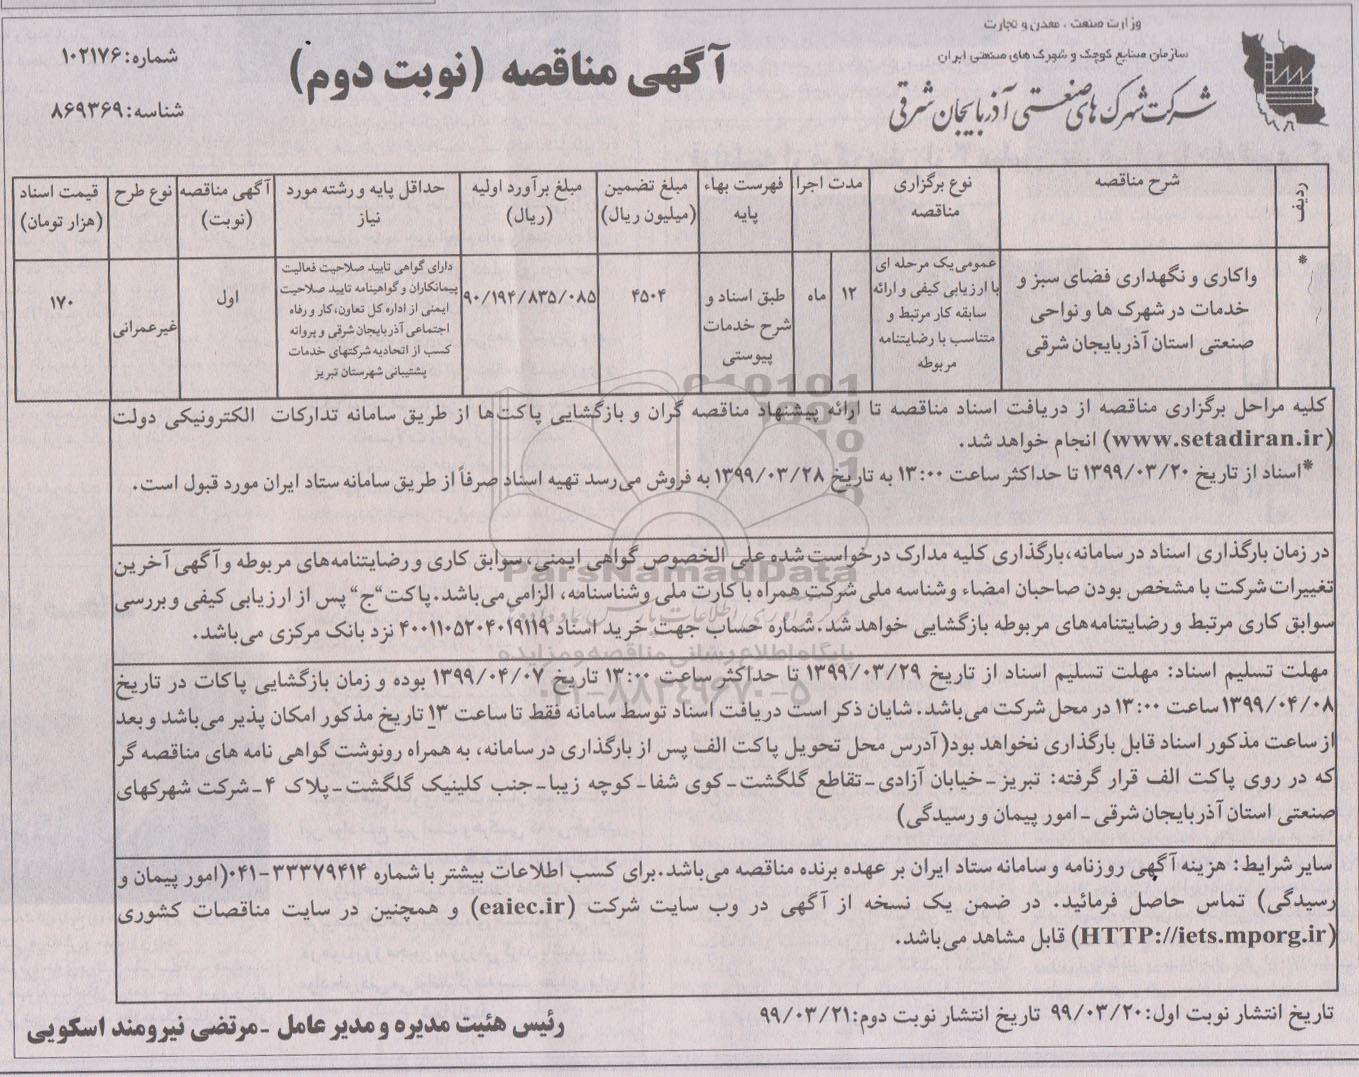 وزارت صنعت ، معدن و تجارت
سازمان صنایع کوچک و شهرک های صنعتی ایران
شرکت شهرک های صنعتی آذربایجان شرقی
آگهی مناقصه (نوبت دوم)
شماره: ۱۰۲۱۷۶
شناسه: ۸۶۹۳۶۹
ردیف
شرح مناقصه
نوع برگزاری مناقصه
مدت اجرا
فهرست بهاء پایه
مبلغ تضمین (میلیون ریال)
مبلغ برآورد اولیه (ریال)
حداقل پایه و رشته مورد نیاز
آگهی مناقصه (نوبت)
نوع طرح
قیمت اسناد (هزار تومان)
*
واکاری و نگهداری فضای سبز و
خدمات در شهرک ها و نواحی
صنعتی استان آذربایجان شرقی
عمومی یک مرحله ای
با ارزیابی کیفی و ارائه
سابقه کار مرتبط و
متناسب با رضایتنامه
مربوطه
۱۲
ماه
طبق اسناد و
شرح خدمات
پیوستی
۴۵۰۴
۹۰/۱۹۴/۸۳۵/۰۸۵
دارای گواهی تایید صلاحیت فعالیت
پیمانکاران و گواهینامه تایید صلاحیت
ایمنی از اداره کل تعاون، کار و رفاه
اجتماعی آذربایجان شرقی و پروانه
کسب از اتحادیه شرکتهای خدمات
پشتیبانی شهرستان تبریز
اول
غیرعمرانی
۱۷۰
کلیه مراحل برگزاری مناقصه از دریافت اسناد مناقصه تا ارائه پیشنهاد مناقصه گران و بازگشایی پاکت‌ها از طریق سامانه تدارکات الکترونیکی دولت
(www.setadiran.ir) انجام خواهد شد.
*اسناد از تاریخ ۱۳۹۹/۰۳/۲۰ تا حداکثر ساعت ۱۳:۰۰ به تاریخ ۱۳۹۹/۰۳/۲۸ به فروش می‌رسد تهیه اسناد صرفاً از طریق سامانه ستاد ایران مورد قبول است.
در زمان بارگذاری اسناد در سامانه، بارگذاری کلیه مدارک درخواست شده علی الخصوص گواهی ایمنی، سوابق کاری و رضایتنامه‌های مربوطه و آگهی آخرین
تغییرات شرکت با مشخص بودن صاحبان امضاء و شناسه ملی شرکت همراه با کارت ملی و شناسنامه، الزامی می‌باشد. پاکت "ج" پس از ارزیابی کیفی و بررسی
سوابق کاری مرتبط و رضایتنامه‌های مربوطه بازگشایی خواهد شد. شماره حساب جهت خرید اسناد ۴۰۰۱۱۰۵۲۰۴۰۱۹۱۱۹ نزد بانک مرکزی می‌باشد.
مهلت تسلیم اسناد: مهلت تسلیم اسناد از تاریخ ۱۳۹۹/۰۳/۲۹ تا حداکثر ساعت ۱۳:۰۰ تاریخ ۱۳۹۹/۰۴/۰۷ بوده و زمان بازگشایی پاکات در تاریخ
۱۳۹۹/۰۴/۰۸ ساعت ۱۳:۰۰ در محل شرکت می‌باشد. شایان ذکر است دریافت اسناد توسط سامانه فقط تا ساعت ۱۳ تاریخ مذکور امکان پذیر می‌باشد و بعد
از ساعت مذکور اسناد قابل بارگذاری نخواهد بود( آدرس محل تحویل پاکت الف پس از بارگذاری در سامانه، به همراه رونوشت گواهی نامه های مناقصه گر
که در روی پاکت الف قرار گرفته: تبریز - خیابان آزادی - تقاطع گلگشت - کوی شفا - کوچه زیبا - جنب کلینیک گلگشت - پلاک ۴ - شرکت شهرکهای
صنعتی استان آذربایجان شرقی - امور پیمان و رسیدگی)
سایر شرایط: هزینه آگهی روزنامه و سامانه ستاد ایران بر عهده برنده مناقصه می‌باشد. برای کسب اطلاعات بیشتر با شماره ۳۳۳۷۹۴۱۴-۰۴۱(امور پیمان و
رسیدگی) تماس حاصل فرمائید. در ضمن یک نسخه از آگهی در وب سایت شرکت (eaiec.ir) و همچنین در سایت مناقصات کشوری
(HTTP://iets.mporg.ir) قابل مشاهد می‌باشد.
تاریخ انتشار نوبت اول: ۹۹/۰۳/۲۰ تاریخ انتشار نوبت دوم: ۹۹/۰۳/۲۱
رئیس هئیت مدیره و مدیر عامل - مرتضی نیرومند اسکویی
ParsNamadData
پایگاه اطلاع رسانی مناقصه و مزایده
۰۲۱-۸۸۳۴۹۶۷۰-۵